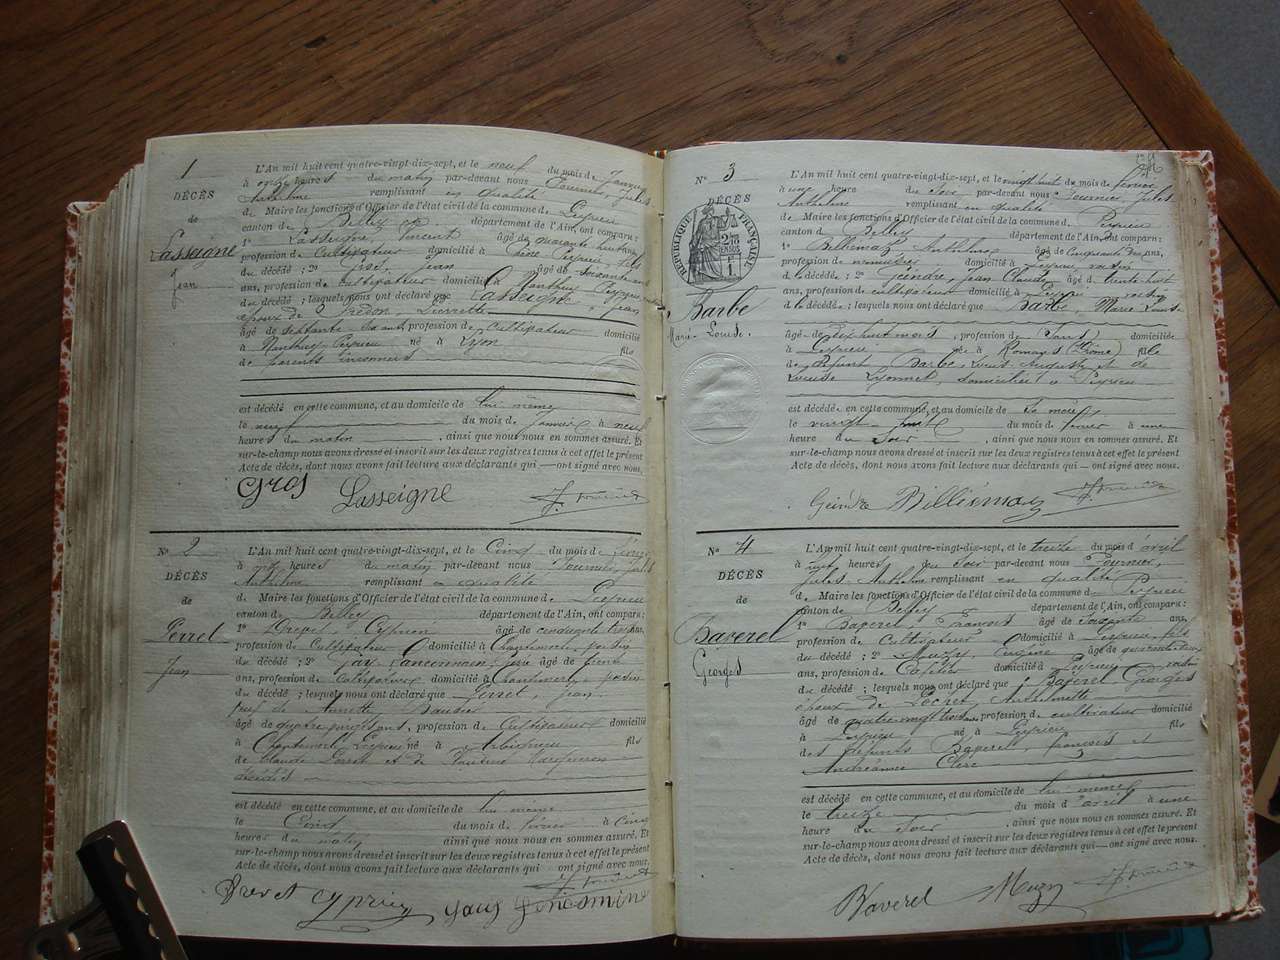 1
DÉCÈS
de
Lasseigne
Jean
L'An mil huit cent quatre-vingt-dix-sept, et le neuf du mois de Janvier
à onze heures du matin par-devant nous Fournier, Jules
Anthelme remplissant en qualité
de Maire les fonctions d'Officier de l'état civil de la commune de Peyrieu
canton de Belley département de l'Ain, ont comparu :
1° Lasseigne, Vincent âgé de quarante
profession de Cultivateur domicilié à Peyrieu fils
du décédé ; 2° Gros, Jean âgé de soixante
ans, profession de cultivateur domicilié à Nanthuy Peyrieu
du décédé ; lesquels nous ont déclaré que Lasseigne, Jean
époux de Pierrette
âgé de septante ans, profession de Cultivateur domicilié
à Nanthuy Peyrieu né à Lyon fils
de parents inconnus
est décédé en cette commune, et au domicile de lui-même
le neuf du mois de Janvier à neuf
heures du matin, ainsi que nous nous en sommes assuré. Et
sur-le-champ nous avons dressé et inscrit sur les deux registres tenus à cet effet le présent
Acte de décès, dont nous avons fait lecture aux déclarants qui — ont signé avec nous.
Gros Lasseigne J. Fournier
N° 2
DÉCÈS
de
Perret
Jean
L'An mil huit cent quatre-vingt-dix-sept, et le Cinq du mois de février
à heures du matin par-devant nous Fournier, Jules
Anthelme remplissant en qualité
de Maire les fonctions d'Officier de l'état civil de la commune de Peyrieu
canton de Belley département de l'Ain, ont comparu :
1° Drevet, Cyprien âgé de cinquante trois ans,
profession de Cultivateur domicilié à Chantemerle, voisin
du décédé ; 2° Gay, âgé de trente
ans, profession de Cultivateur domicilié à Chantemerle voisin
du décédé ; lesquels nous ont déclaré que Perret, Jean
veuf de Annette
âgé de quatre vingts ans, profession de Cultivateur domicilié
à Chantemerle Peyrieu né à fils
de Claude Perret et de
décédés
est décédé en cette commune, et au domicile de lui même
le Cinq du mois de février à Cinq
heures du matin ainsi que nous nous en sommes assuré. Et
sur-le-champ nous avons dressé et inscrit sur les deux registres tenus à cet effet le présent
Acte de décès, dont nous avons fait lecture aux déclarants qui ont signé avec nous.
J. Fournier
Drevet Cyprien
N° 3
DÉCÈS
RÉPUBLIQUE FRANÇAISE
Barbe
Marie Louise
L'An mil huit cent quatre-vingt-dix-sept, et le vingt huit du mois de février
à une heure du soir par-devant nous Fournier, Jules
Anthelme remplissant en qualité
de Maire les fonctions d'Officier de l'état civil de la commune de Peyrieu
canton de Belley département de l'Ain, ont comparu :
1° Billiémaz, Anthelme âgé de Cinquante ans,
profession de domicilié à Peyrieu voisin
de la décédée ; 2° Geindre, Jean Claude âgé de trente huit
ans, profession de cultivateur domicilié à Peyrieu voisin
de la décédée ; lesquels nous ont déclaré que Barbe, Marie Louise
âgée de dix huit mois, profession de domiciliée
à Peyrieu née à Romans (Drôme) fille
de défunt Barbe, Louis Auguste et de
Louise Lyonnet, domiciliée à Peyrieu
est décédée en cette commune, et au domicile de sa mère
le vingt huit du mois de février à une
heure du Soir, ainsi que nous nous en sommes assuré. Et
sur-le-champ nous avons dressé et inscrit sur les deux registres tenus à cet effet le présent
Acte de décès, dont nous avons fait lecture aux déclarants qui — ont signé avec nous.
Geindre Billiémaz J. Fournier
N° 4
DÉCÈS
de
Baverel
Georges
L'An mil huit cent quatre-vingt-dix-sept, et le treize du mois d'avril
à huit heures du soir par-devant nous Fournier,
Jules Anthelme remplissant en qualité
de Maire les fonctions d'Officier de l'état civil de la commune de Peyrieu
canton de Belley département de l'Ain, ont comparu :
1° Baverel, François âgé de soixante ans,
profession de Cultivateur domicilié à Peyrieu, fils
du décédé ; 2° Muzy, Eugène âgé de quarante
ans, profession de domicilié à Peyrieu voisin
du décédé ; lesquels nous ont déclaré que Baverel Georges
époux de Anthelmette
âgé de quatre vingt trois ans profession de cultivateur domicilié
à Peyrieu né à Peyrieu fils
des défunts Baverel, François et
Clerc
est décédé en cette commune, et au domicile de lui même
le treize du mois d'avril à une
heure du Soir, ainsi que nous nous en sommes assuré. Et
sur-le-champ nous avons dressé et inscrit sur les deux registres tenus à cet effet le présent
Acte de décès, dont nous avons fait lecture aux déclarants qui — ont signé avec nous.
Baverel Muzy J. Fournier